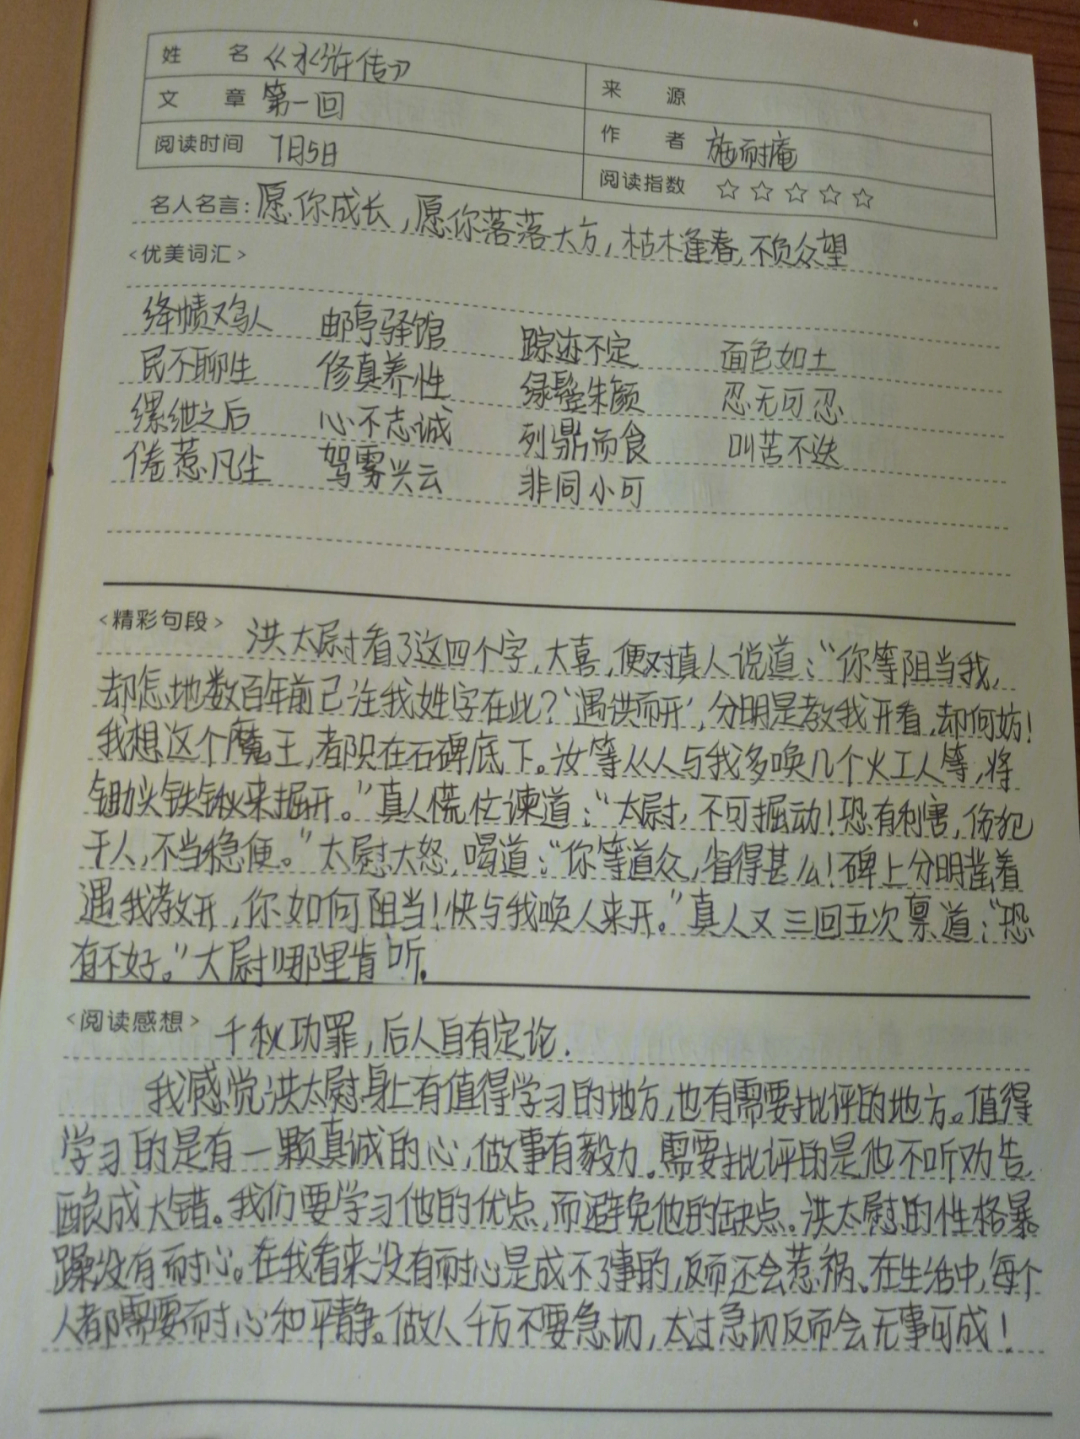 姓 名 《水浒传》 来 源
文 章 第一回 作 者 施耐庵
阅读时间 7月5日 阅读指数 ☆☆☆☆☆
名人名言:愿你成长,愿你落落大方,枯木逢春,不负众望
<优美词汇>
绛帻鸡人 邮亭驿馆 踪迹不定 面色如土
民不聊生 修真养性 绿鬓朱颜 忍无可忍
缧绁之后 心不志诚 列鼎而食 叫苦不迭
倦惹凡尘 驾雾兴云 非同小可
<精彩句段> 洪太尉看了这四个字,大喜,便对真人说道:“你等阻当我,
却怎地数百年前已注我姓字在此?‘遇洪而开’,分明是教我开看,却何妨!
我想这个魔王,都只在石碑底下。汝等从人与我多唤几个火工人等,将
锄头铁锹来掘开。”真人慌忙谏道:“太尉,不可掘动!恐有利害,伤犯
于人,不当稳便。”太尉大怒,喝道:“你等道众,省得甚么!碑上分明凿着
遇我教开,你如何阻当!快与我唤人来开。”真人又三回五次禀道:“恐
有不好。”太尉哪里肯听。
<阅读感想> 千秋功罪,后人自有定论.
我感觉洪太尉身上有值得学习的地方,也有需要批评的地方。值得
学习的是有一颗真诚的心,做事有毅力。需要批评的是他不听劝告,
酿成大错。我们要学习他的优点,而避免他的缺点。洪太尉的性格暴
躁没有耐心。在我看来没有耐心是成不了事的,反而还会惹祸。在生活中,每个
人都需要耐心和平静。做人千万不要急切,太过急切反而会无事可成!